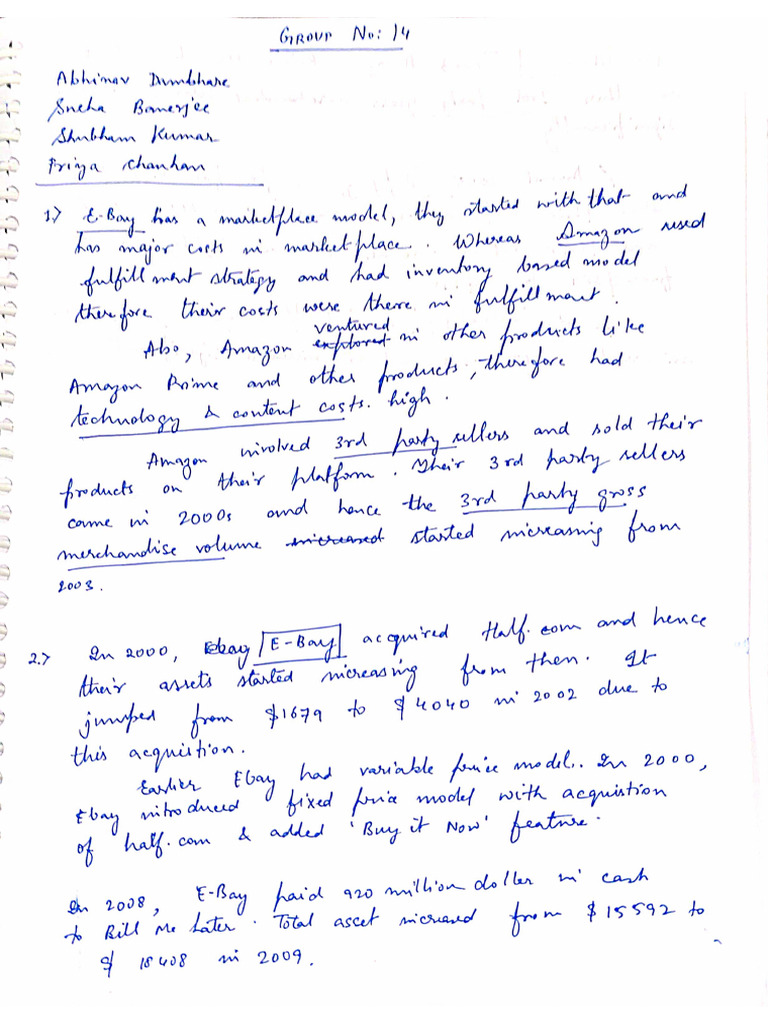 GROUP No: 14
Abhinav Dumbhare
Sneha Banerjee
Shubham Kumar
Priya Chauhan
1.) E-Bay has a marketplace model, they started with that and
has major costs in marketplace. Whereas Amazon used
fulfillment strategy and had inventory based model
therefore their costs were there in fulfillment.
Also, Amazon explored ventured in other products like
Amazon Prime and other products, therefore had
technology & content costs. high.
Amazon involved 3rd party sellers and sold their
products on their platform. Their 3rd party sellers
came in 2000s and hence the 3rd party gross
merchandise volume increased started increasing from
2003.
2.) In 2000, Ebay E-Bay acquired Half.com and hence
their assets started increasing from then. It
jumped from $1679 to $4040 in 2002 due to
this acquistion.
Earlier Ebay had variable price model. In 2000,
Ebay introduced fixed price model with acquistion
of half.com & added 'Buy it Now' feature.
In 2008, E-Bay paid 920 million doller in cash
to Bill Me Later. Total asset increased from $15592 to
$ 18408 in 2009.